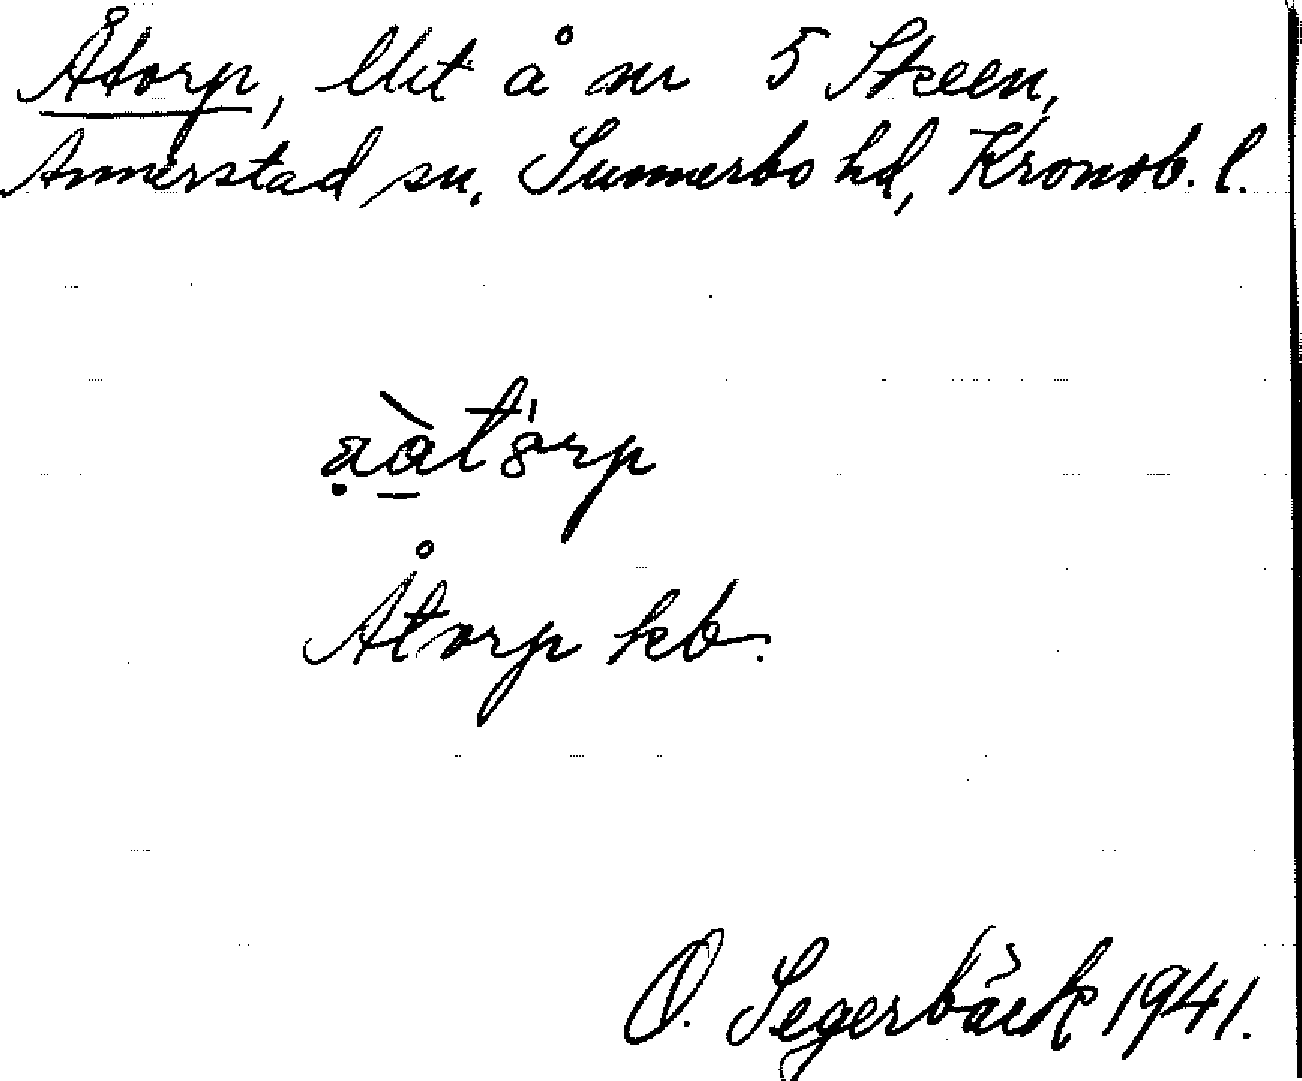 Åtorp, litt å nr 5 Skeen,
Annerstad sn, Sunnerbo hd, Kronob. l.
Åtorp kb.
O. Segerbäck 1941.